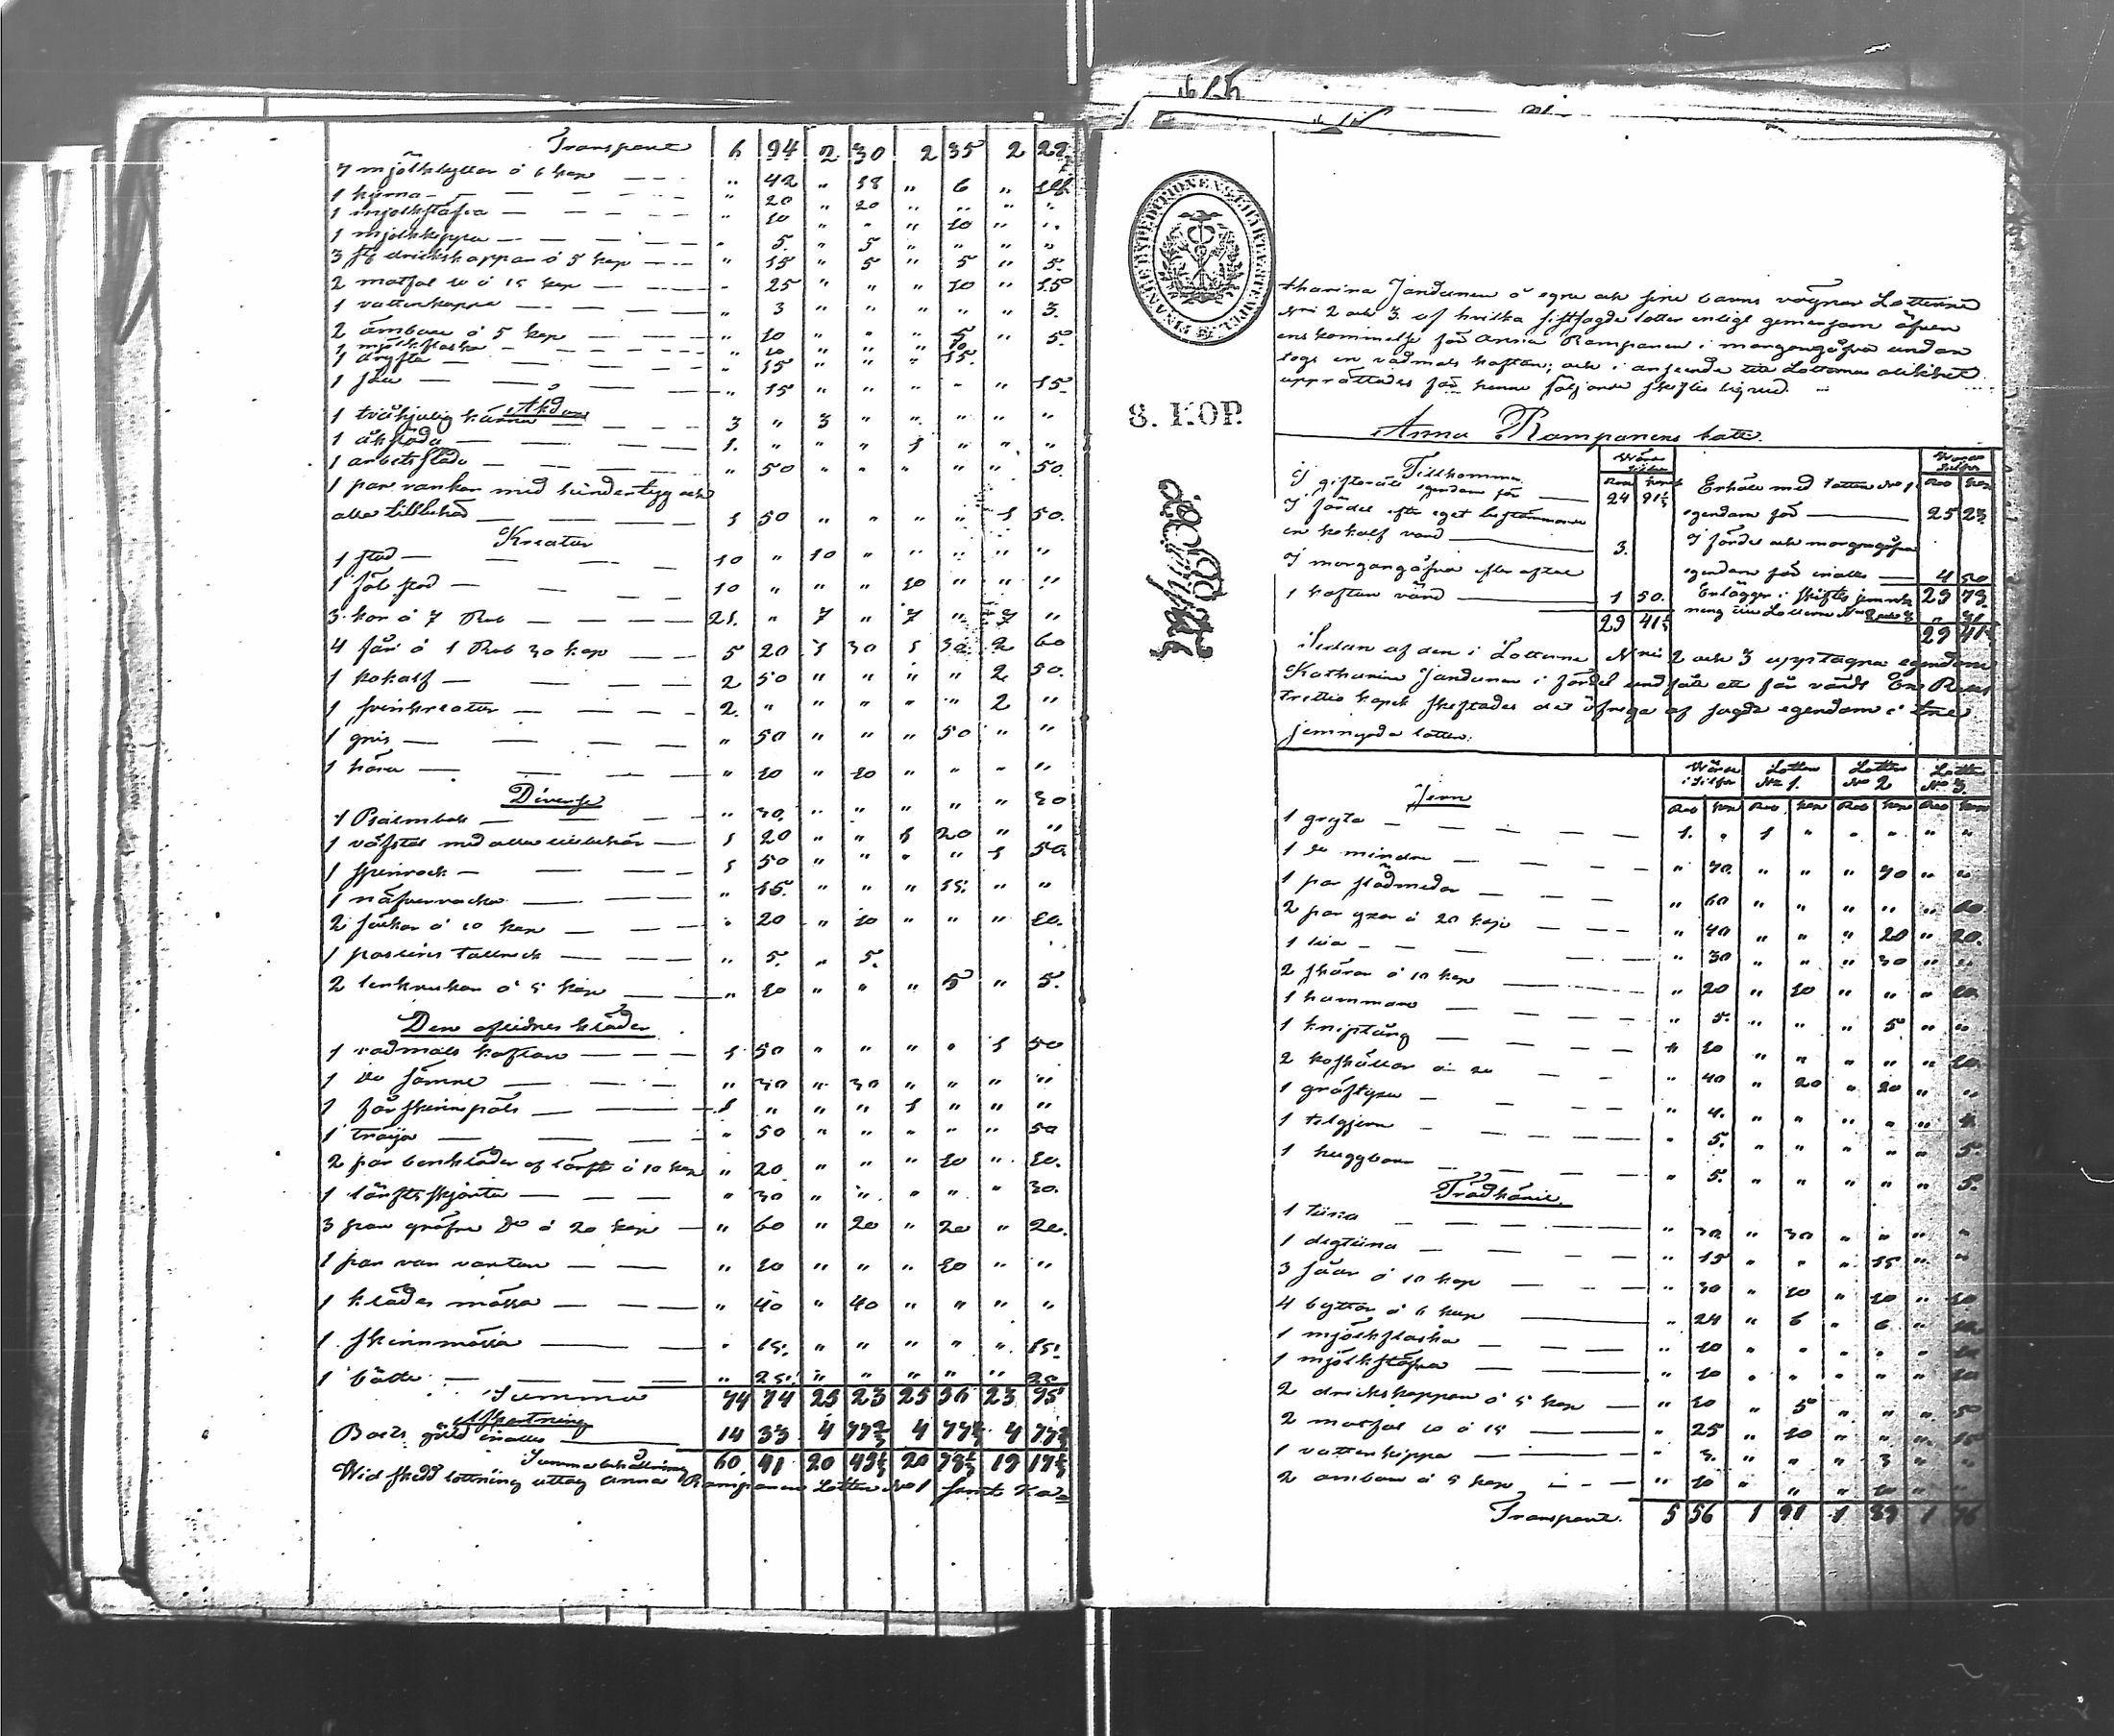 Transport 6 94 2 30 2 35 2 29
7 mjölkbyttor á 6 kop — „ 42 „ 18 „ 6 „ 18
1 kjerna — „ 20 „ 20 „ „ „ „
1 mjölkstäfva — „ 10 „ „ „ 10 „ „
1 mjölkkippa — „ 5. „ 5 „ „ „ „
3 st drickskoppar á 5 kop — „ 15 „ 5 „ 5 „ 5.
2 matfat 10 á 15 kop — „ 25 „ „ „ 10 „ 15
1 vattenkoppa — „ 3 „ „ „ „ „ 3.
2 ämbare á 5 kop — „ 10 „ „ „ 5 „ 5.
1 mjölkflaska — „ 10 „ „ „ 10
1 dryfta — „ 15 „ „ „ 15.
1 — „ 15 „ „ „ „ „ 15
Åkdon
1 tvåhjulig kärra — 3 „ 3 „ „ „ „ „
1 åksläda — 1. „ „ „ 1 „ „ „
1 arbetssläda — „ 50 „ „ „ „ „ 50.
1 par rankor med
alla tillbehör — 1 50 „ „ „ „ 1 50.
Kreatur
1 stod — 10 „ 10 „ „ „ „ „
1 föl stod — 10 „ „ „ 10 „ „ „
3 kor á 7 Rub — 21. „ 7 „ 7 „ 7 „
4 får á 1 Rub 30 kop — 5 20 1 30 1 30 2 60
1 kokalf — 2 50 „ „ „ „ 2 50.
1 svinkreatur — 2. „ „ „ „ „ 2 „
1 gris — „ 50 „ „ „ 50 „ „
1 — „ 10 „ 10 „ „ „ „
Diverse
1 Psalmbok — „ 30. „ „ „ „ „ 30
1 väfstol med alla tillbehör — 1 20 „ „ 1 20 „ „
1 spinrock — 1 50 „ „ „ „ 1 50
1 näfverracka — „ 15. „ „ „ 15. „ „
2 säckar á 10 kop — „ 20 „ 10 „ „ „ 10.
1 poslins tallrick — „ 5. „ 5.
2 lerkrukor á 5 kop — „ 10 „ „ „ 5 „ 5.
Den aflidnes kläder
1 vadmals kaftan — 1 50 „ „ „ „ 1 50
1 do sämre — „ 30 „ 30 „ „ „ „
1 fårskinnpäls — 1 „ „ „ 1 „ „ „
1 tröija — „ 50 „ „ „ „ „ 50
2 par benkläder af lärft á 10 kop „ 20 „ „ „ 10 „ 10.
1 lärftsskjorta — „ 30 „ „ „ „ „ 30.
3 par gröfre do á 20 kop — „ 60 „ 20 „ 20 „ 20.
1 par vantar — „ 10 „ „ „ 10 „ „
1 klädes mössa — „ 40 „ 40 „ „ „ „
1 skinnmössa — „ 15. „ „ „ „ „ 15.
1 bälte — „ 20. „ „ „ „ „ 20
Summa 74 74 25 23 25 56 23 95
Afkortning
Boets gäld inalles — 14 33 4 77⅔ 4 77⅔ 4 77⅔
Summa behållning 60 41 20 45⅓ 20 78⅓ 19 17⅓
Wid skedd lottning uttog Anna Rampanen Lotten No 1 samt Ka-
8. KOP.
tharina Jandunen á egna och sine barns vägnar Lotterna
Nris 2 och 3. af hvilka sistsagde lotter enligt gemensam öfver
enskommelse för Anna Rampanen i morgongåfva undan
togs en vadmals kaftan; och i anseende till Lotternas olikhet
upprättades för henne följande skiftes liqvid.
Anna Rampanens lott.
Tillkommer
Wärde Silfver
Rub kop
I giftorätt egendom för — 24 91⅓
I fördel efter eget bestämmande
en kokalf värd — 3.
I morgongåfva efter aftal
1 kaftan värd — 1 50.
29 41⅓
Wärde Silfver
Rub kop
Erhåller med lotten No 1
egendom för — 25 23.
I fördel och morgongåfva
egendom för inalles — 4 50
29 73.
Erlägger i skiftes jemnk
ning till Lotterne No 2 och 3 „ 31
29 41⅓
Sedan af den i Lotterne Nris 2 och 3 upptagna egendom
Katharina Jandunen i fördel undfått ett får värdt En Rubel
trettio kopek skiftades det öfriga af sagde egendom i tree
jemngoda lotter.
Wärde i Silfver Lotten No 1. Lotten No 2 Lotten No 3.
Jern Rub kop Rub kop Rub kop Rub kop
1 gryta — 1. „ 1 „ „ „ „ „
1 do mindre — „ 70. „ „ „ 70 „ „
1 par slädmedar — „ 60 „ „ „ „ „ 60
2 par yxor á 20 kop — „ 40 „ „ „ 20 „ 20.
1 lia — „ 30 „ „ „ 30 „ „
2 skäror á 10 kop — „ 20 „ 10 „ „ „ 10.
1 hammare — „ 5. „ „ „ 5 „ „
1 kniptång — „ 10 „ „ „ „ „ 10.
2 koskällor á 20 — „ 40 „ 20 „ 20 „ „
1 gräftyxa — „ 4. „ „ „ „ „ 4.
1 telgjern — „ 5. „ „ „ „ „ 5.
1 huggbom — „ 5. „ „ „ „ „ 5.
Trädkäril
1 tina — „ 30 „ 30 „ „ „ „
1 degtina — „ 15 „ „ „ 15 „ „
3 såar á 10 kop — „ 30 „ 10 „ 10 „ 10
4 byttor á 6 kop — „ 24 „ 6 „ 6 „ 12
1 mjölkflaska — „ 10 „ „ „ „ „ 10
1 mjölkstäfva — „ 10 „ „ „ „ „ 10
2 drickskoppar á 5 kop — „ 10 „ 5 „ „ „ 5
2 matfat 10 á 15 — „ 25 „ 10 „ „ „ 15
1 vattenkippa — „ 3. „ „ „ 3 „ „
2 ämbare á 5 kop — „ 10 „ „ „ 10 „ „
Transport. 5 56 1 91 1 89 1 76